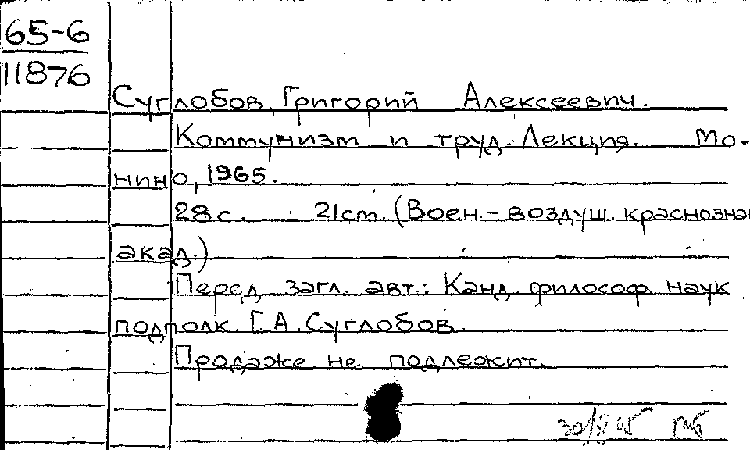 65-6
11876
Суглобов, Григорий Алексеевич.
Коммунизм и труд. Лекция. Мо-
нино, 1965.
28 с. 21 cm. (Воен.-воздуш. краснознам
акад.)
Перед загл. авт.: Канд. философ. наук
подполк. Г.А. Суглобов.
Продаже не подлежит.